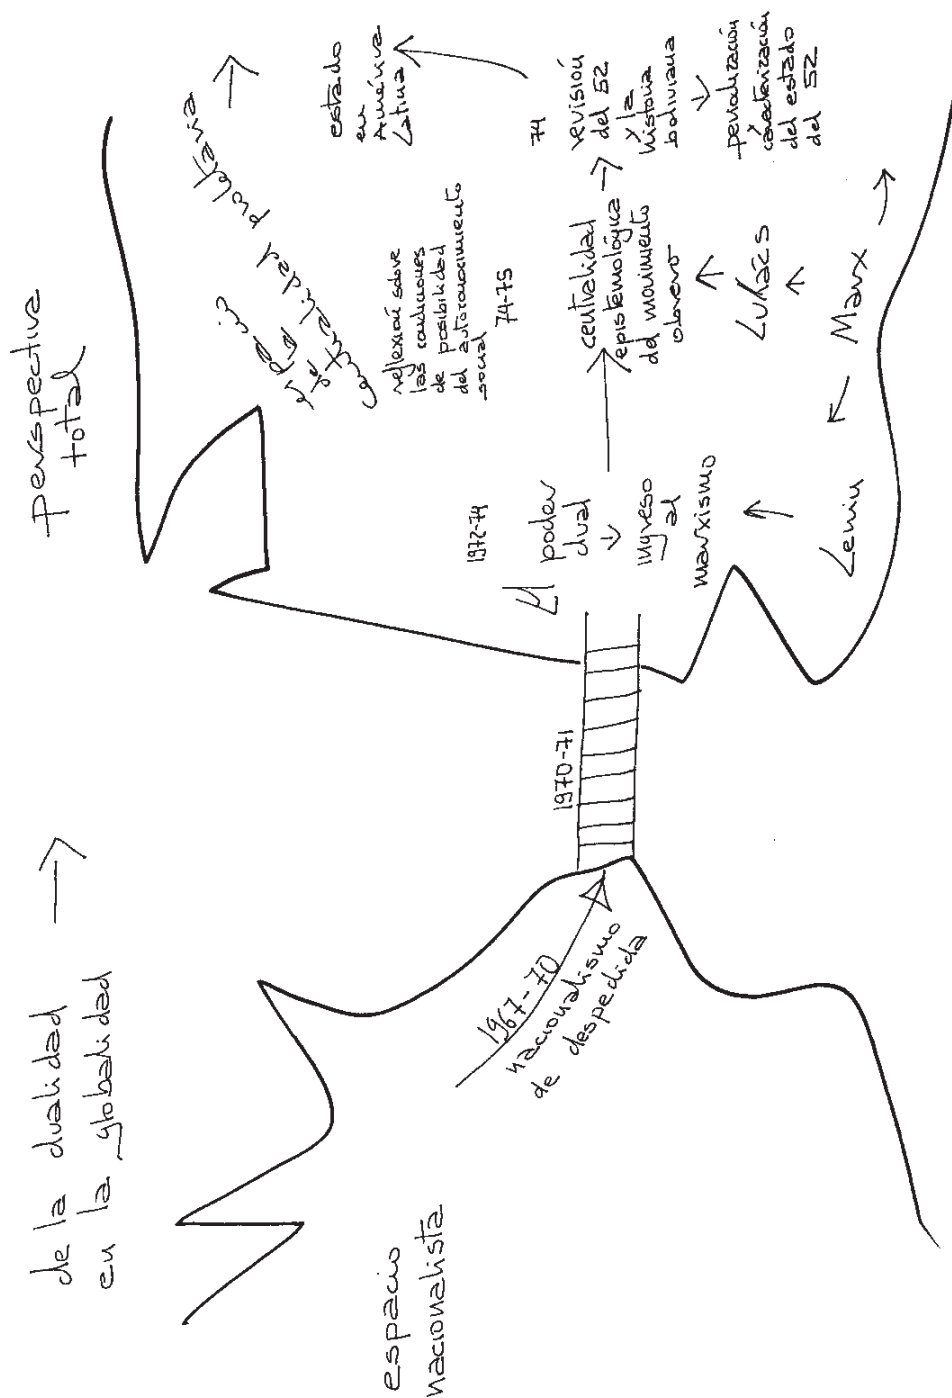 de la dualidad →
en la globalidad
perspectiva
total
espacio
nacionalista
1967-70
nacionalismo
de despedida
1970-71
1972-74
El
poder
dual
↓
ingreso
al
marxismo
Lenin
Marx
Lukács
centralidad
epistemológica
del movimiento
obrero
reflexión sobre
las condiciones
de posibilidad
del autoconocimiento
social
74-75
de la
centralidad proletaria
74
revisión
del 52
y la
historia
boliviana
↓
periodización
caracterización
del estado
del 52
estado
en
América
Latina